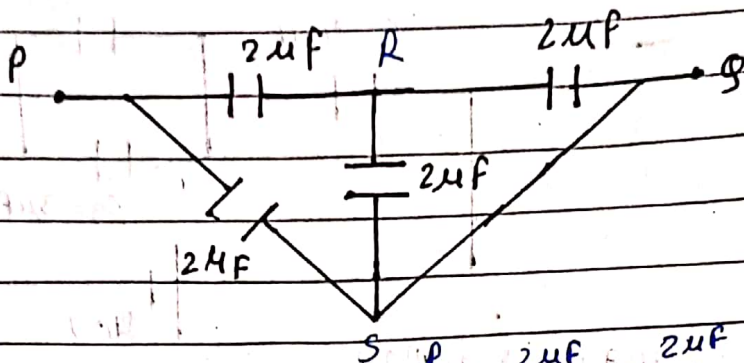 P 2μF R 2μF Q
2μF
2μF
S P 2μF 2μF